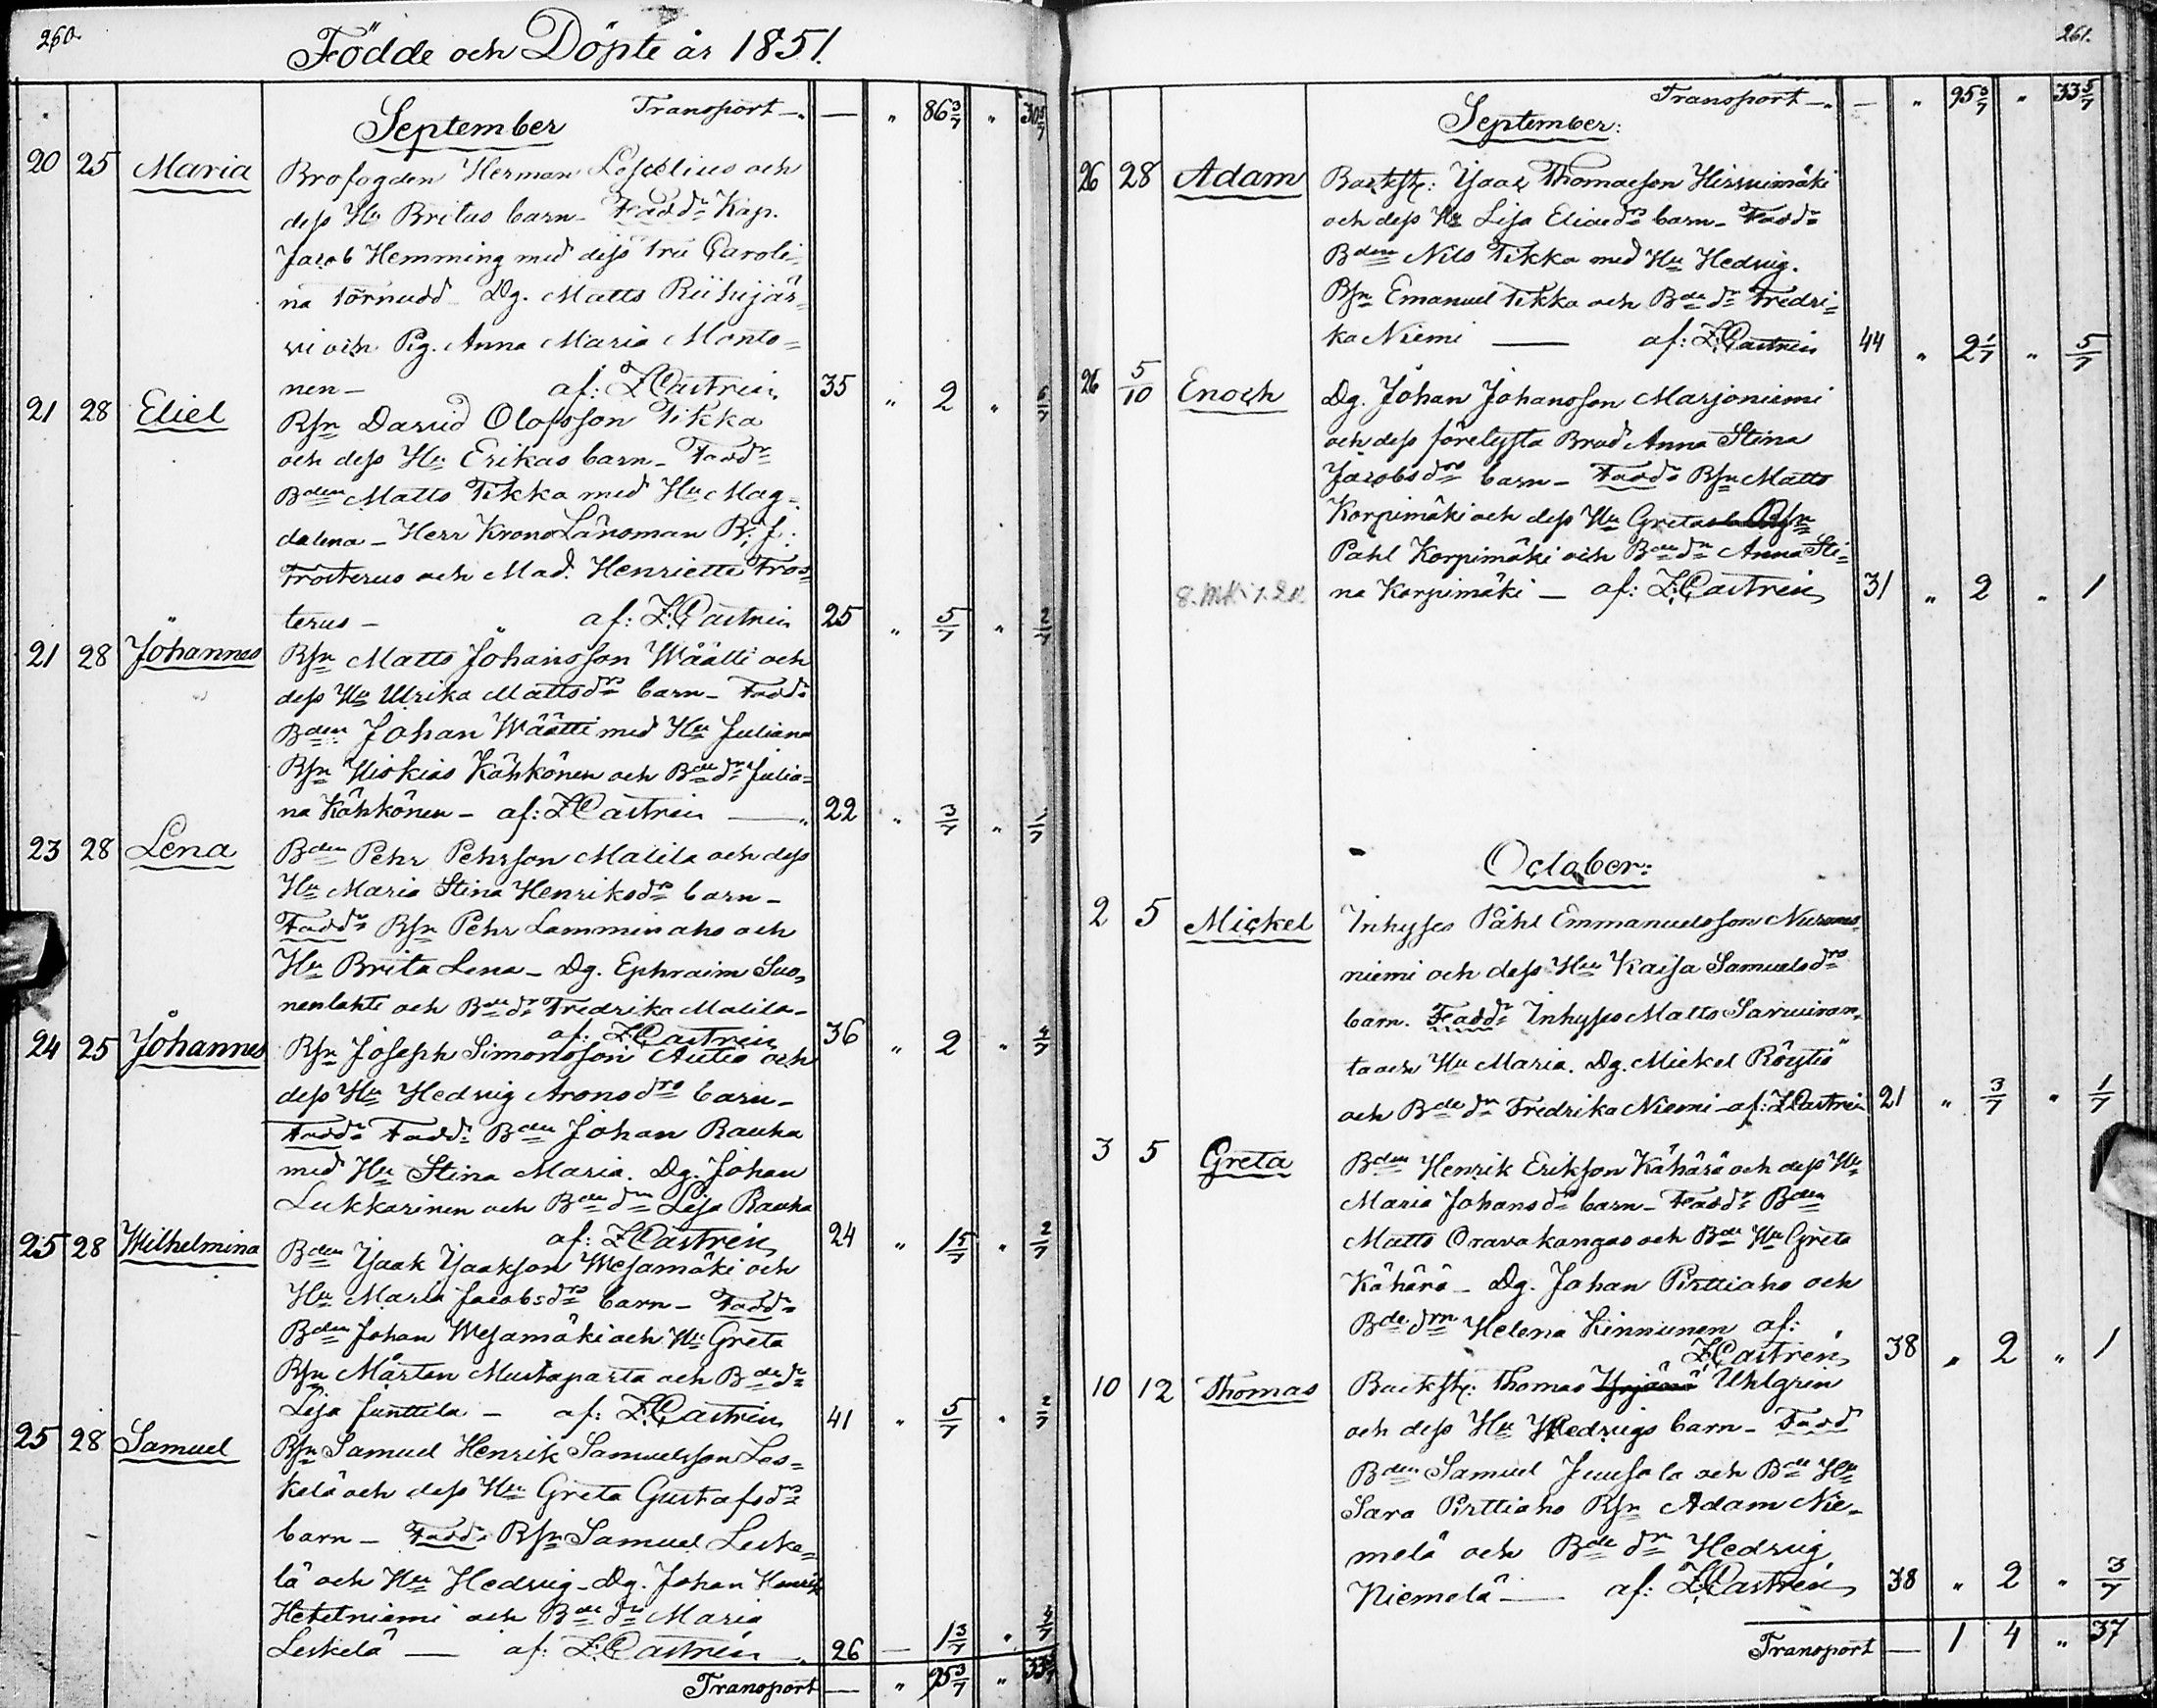 260.
Födde och Döpte år 1851.
Transport — — " 86 3/7 " 30 5/7
September
20 25 Maria Brofogden Herman Leſcelius och
deſs Hu Britas barn – Fadd: Kap.
Jacob Hemming med deſs fru Caroli=
na Törnudd – Dg. Matts Riihijär=
vi och Pig. Anna Maria Monto=
nen – af: Z. Castrén 35 " 2 "
21 28 Eliel Bſn David Olofsſon Tikka
och deſs Hu Erikas barn – Fadd:
Bden Matts Tikka med Hu Mag=
dalena – Herr Krono Länsman B: f:
Frosterus och Mad. Henriette Fros=
terus – af: Z. Castrén 25 " 5/7 " 2/7
21 28 Johannes Bſn Matts Johansſon Wäätti och
deſs Hu Ulrika Mattsdrs barn – Fadd:
Bden Johan Wäätti med Hu Juliana
Bſn Hiskias Kähkönen och Bde dr Julia=
na Kähkönen – af: Z Castrén — 22 " 3/7 " 1/7
23 28 Lena Bden Pehr Pehrſon Malila och deſs
Hu Maria Stina Henriksdrs barn –
Fadd: Bſn Pehr Lamminaho och
Hu Brita Lena – Dg. Ephraim Suo=
nenlahti och Bde dr Fredrika Malila –
af: Z Castrén 36 " 2 "
24 25 Johannes Bſn Joſeph Simonsſon Autio och
deſs Hu Hedvig Aronsdrs barn –
Fadd: Fadd: Bden Johan Rauha
med Hu Stina Maria. Dg. Johan
Lukkarinen och Bde dr Liſa Rauha
af: Z Castrén 24 " 1 5/7 " 2/7
25 28 Wilhelmina Bden Yſaak Yſaakſon Meſamäki och
Hu Maria Jacobsdrs barn – Fadd:
Bden Johan Meſamäki och Hu Greta
Bſn Mårten Mustaparta och Bde dr
Liſa Junttila – af: Z. Castrén 41 " 5/7 " 2/7
25 28 Samuel Bſn Samuel Henrik Samuelsſon Les=
kelä och deſs Hu Greta Gustafsdrs
barn – Fadd: Bſn Samuel Leske=
lä och Hu Hedvig – Dg. Johan Henrik
Hetetniemi och Bde dr Maria
Leskelä — af: Z. Castrén 26 — 1 3/7 "
Transport — " 95 3/7 "
261.
Transport — — " 95 3/7 " 33 5/7
September:
26 28 Adam Backſt: Yſaac Thomaeſon Hirvimäki
och deſs Hu Liſa Eliaedrs barn – Fadd:
Bden Nils Tikka med Hu Hedvig.
Bſn Emanuel Tikka och Bde dr Fredri=
ka Niemi — af: Z. Castrén 44 " 2 1/7 " 5/7
26 5/10 Enoch Dg. Johan Johansſon Marjoniemi
och deſs förelyſta Brud Anna Stina
Jacobsdrs barn – Fadd: Bſn Matts
Korpimäki och deſs Hu Greta
Pahl Korpimäki och Bde dr Anna Sti=
na Korpimäki — af: Z. Castrén 31 " 2 " 1
October:
2 5 Mickel Inhyſes Påhl Emmanuelsſon Nurmes
niemi och deſs Hu Kaiſa Samuelsdrs
barn. Fadd: Inhyſes Matts Sarviran=
ta och Hu Maria. Dg. Mickel Röytiö
och Bde dr Fredrika Niemi – af: Z Castrén 21 " 3/7 " 1/7
3 5 Greta Bden Henrik Erikſon Kähärä och deſs Hu
Maria Johansdr barn – Fadd: Bden
Matts Oravakangas och Bde Hu Greta
Kähärä – Dg. Johan Pirttiaho och
Bde drn Helena Kinnunen af:
Z Castrén 38 " 2 " 1
10 12 Thomas Backſt: Thomas Yrjänä Uhlgren
och deſs Hu Hedvigs barn – Fadd
Bden Samuel Juuſola och Bde Hu
Sara Pirttiaho Bſn Adam Nie=
melä och Bde dr Hedvig
Niemelä — af: Z Castrén 38 " 2 " 3/7
Transport — 1 4 " 37